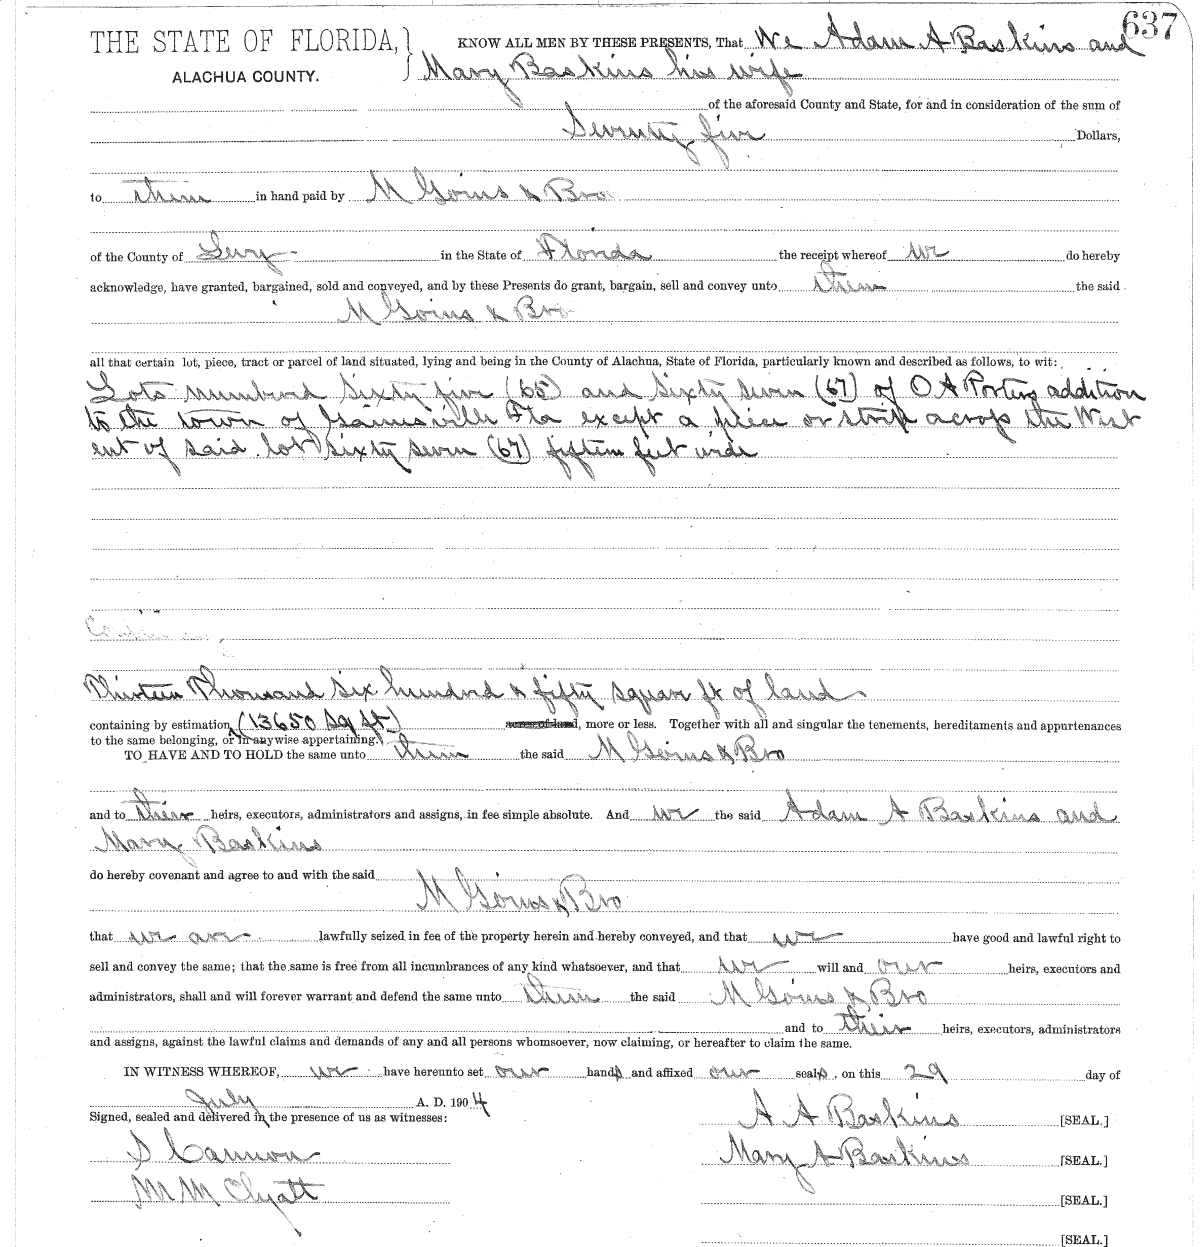 637
THE STATE OF FLORIDA,
ALACHUA COUNTY.
KNOW ALL MEN BY THESE PRESENTS, That We Adam A Baskins and
Mary Baskins his wife
of the aforesaid County and State, for and in consideration of the sum of
Seventy five Dollars,
to them in hand paid by M Goins & Bro
of the County of Levy in the State of Florida the receipt whereof we do hereby
acknowledge, have granted, bargained, sold and conveyed, and by these Presents do grant, bargain, sell and convey unto them the said
M Goins & Bro
all that certain lot, piece, tract or parcel of land situated, lying and being in the County of Alachua, State of Florida, particularly known and described as follows, to wit:
Lots numbered Sixty five (65) and Sixty seven (67) of O A Porters addition
to the town of Gainesville Fla except a piece or strip across the West
ent of said lot sixty seven (67) fifteen feet wide
Thirteen Thousand Six hundred & fifty square ft of land
containing by estimation (13650 Sq ft) acres of land, more or less. Together with all and singular the tenements, hereditaments and appurtenances
to the same belonging, or in anywise appertaining.
TO HAVE AND TO HOLD the same unto them the said M Goins & Bro
and to their heirs, executors, administrators and assigns, in fee simple absolute. And we the said Adam A Baskins and
Mary Baskins
do hereby covenant and agree to and with the said
M Goins & Bro
that we are lawfully seized in fee of the property herein and hereby conveyed, and that we have good and lawful right to
sell and convey the same; that the same is free from all incumbrances of any kind whatsoever, and that we will and our heirs, executors and
administrators, shall and will forever warrant and defend the same unto them the said M Goins & Bro
and to their heirs, executors, administrators
and assigns, against the lawful claims and demands of any and all persons whomsoever, now claiming, or hereafter to claim the same.
IN WITNESS WHEREOF, we have hereunto set our hands and affixed our seals, on this 29 day of
July A. D. 1904
Signed, sealed and delivered in the presence of us as witnesses:
A A Baskins [SEAL.]
S Cannon
Mary A Baskins [SEAL.]
M M Clyatt
[SEAL.]
[SEAL.]